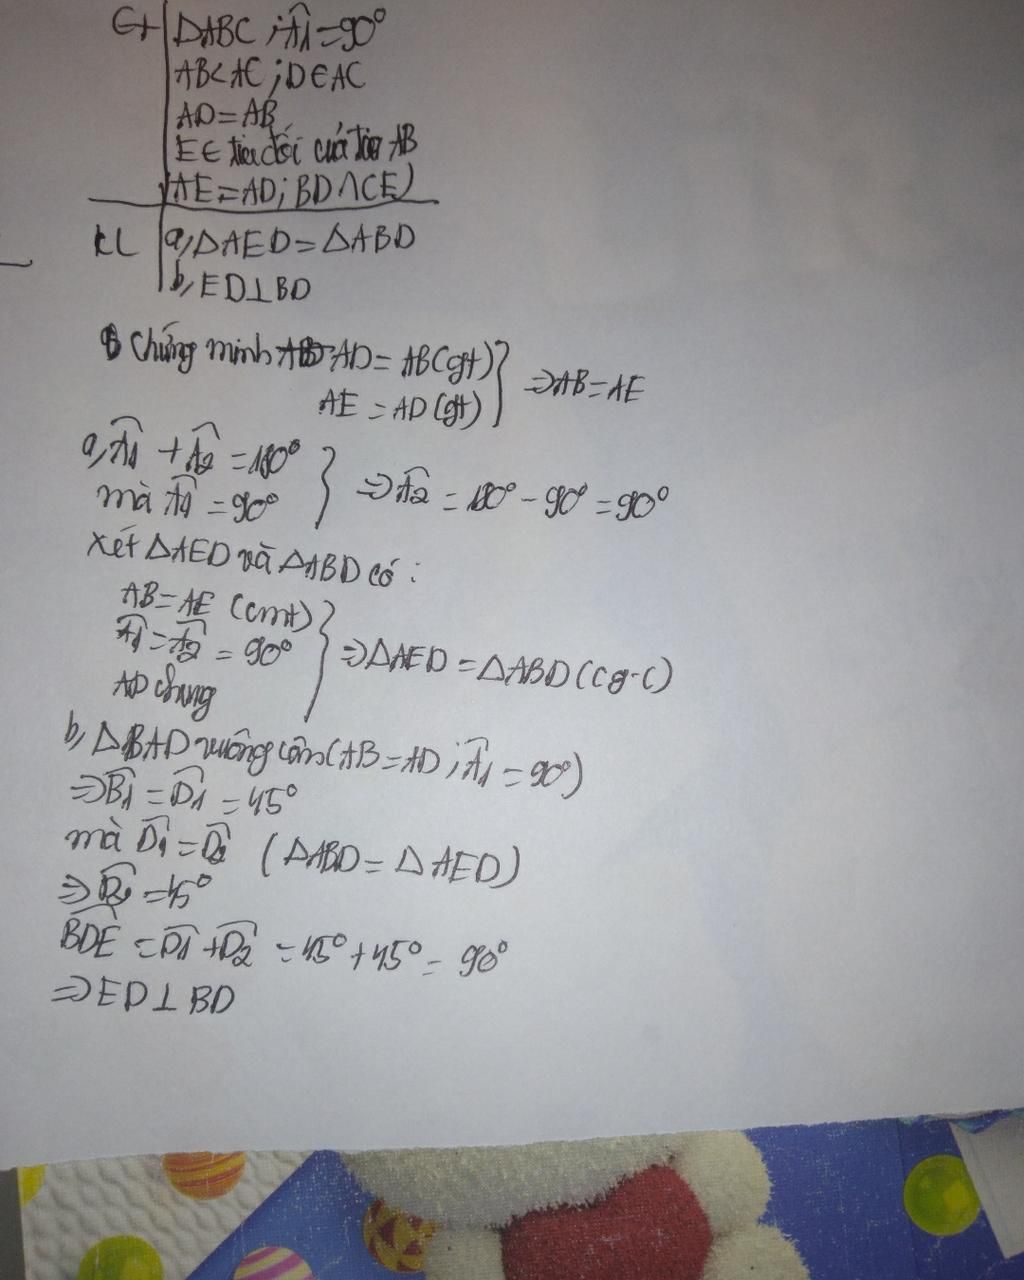 Gt ΔABC ; Â1 = 90°
AB < AC ; D ∈ AC
AD = AB
E ∈ tia đối của tia AB
AE = AD ; BD ∩ CE)
KL a, ΔAED = ΔABD
b, ED ⊥ BD
Chứng minh AD = AB (gt)
AE = AD (gt) } ⇒ AB = AE
a, Â1 + Â2 = 180°
mà Â1 = 90° } ⇒ Â2 = 180° - 90° = 90°
xét ΔAED và ΔABD có :
AB = AE (cmt)
Â1 = Â2 = 90° } ⇒ ΔAED = ΔABD (c-g-c)
AD chung
b, ΔBAD vuông cân (AB = AD ; Â1 = 90°)
⇒ B̂1 = D̂1 = 45°
mà D̂1 = D̂2 (ΔABD = ΔAED)
⇒ D̂2 = 45°
BDE = D̂1 + D̂2 = 45° + 45° = 90°
⇒ ED ⊥ BD